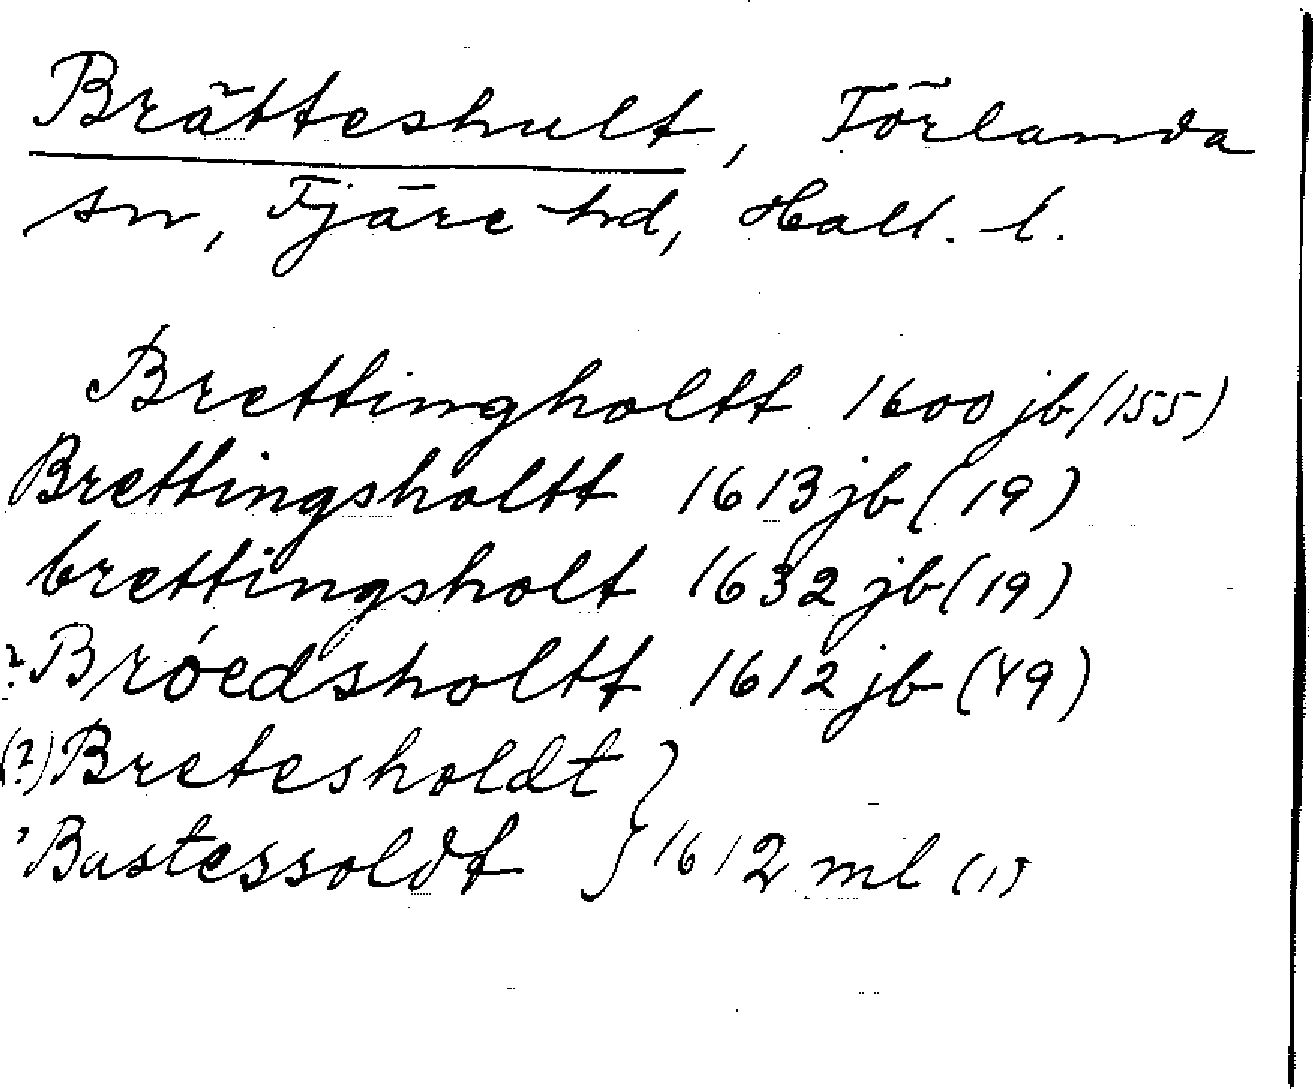 Brätteshult, Förlanda
sn, Fjäre hd, Hall. l.
Brettingholtt 1600 jb (155)
Brettingsholtt 1613 jb (19)
brettingsholt 1632 jb (19)
? Bróedsholtt 1612 jb (49)
(?) Bretesholdt
? Bastessoldt } 1612 ml (1)